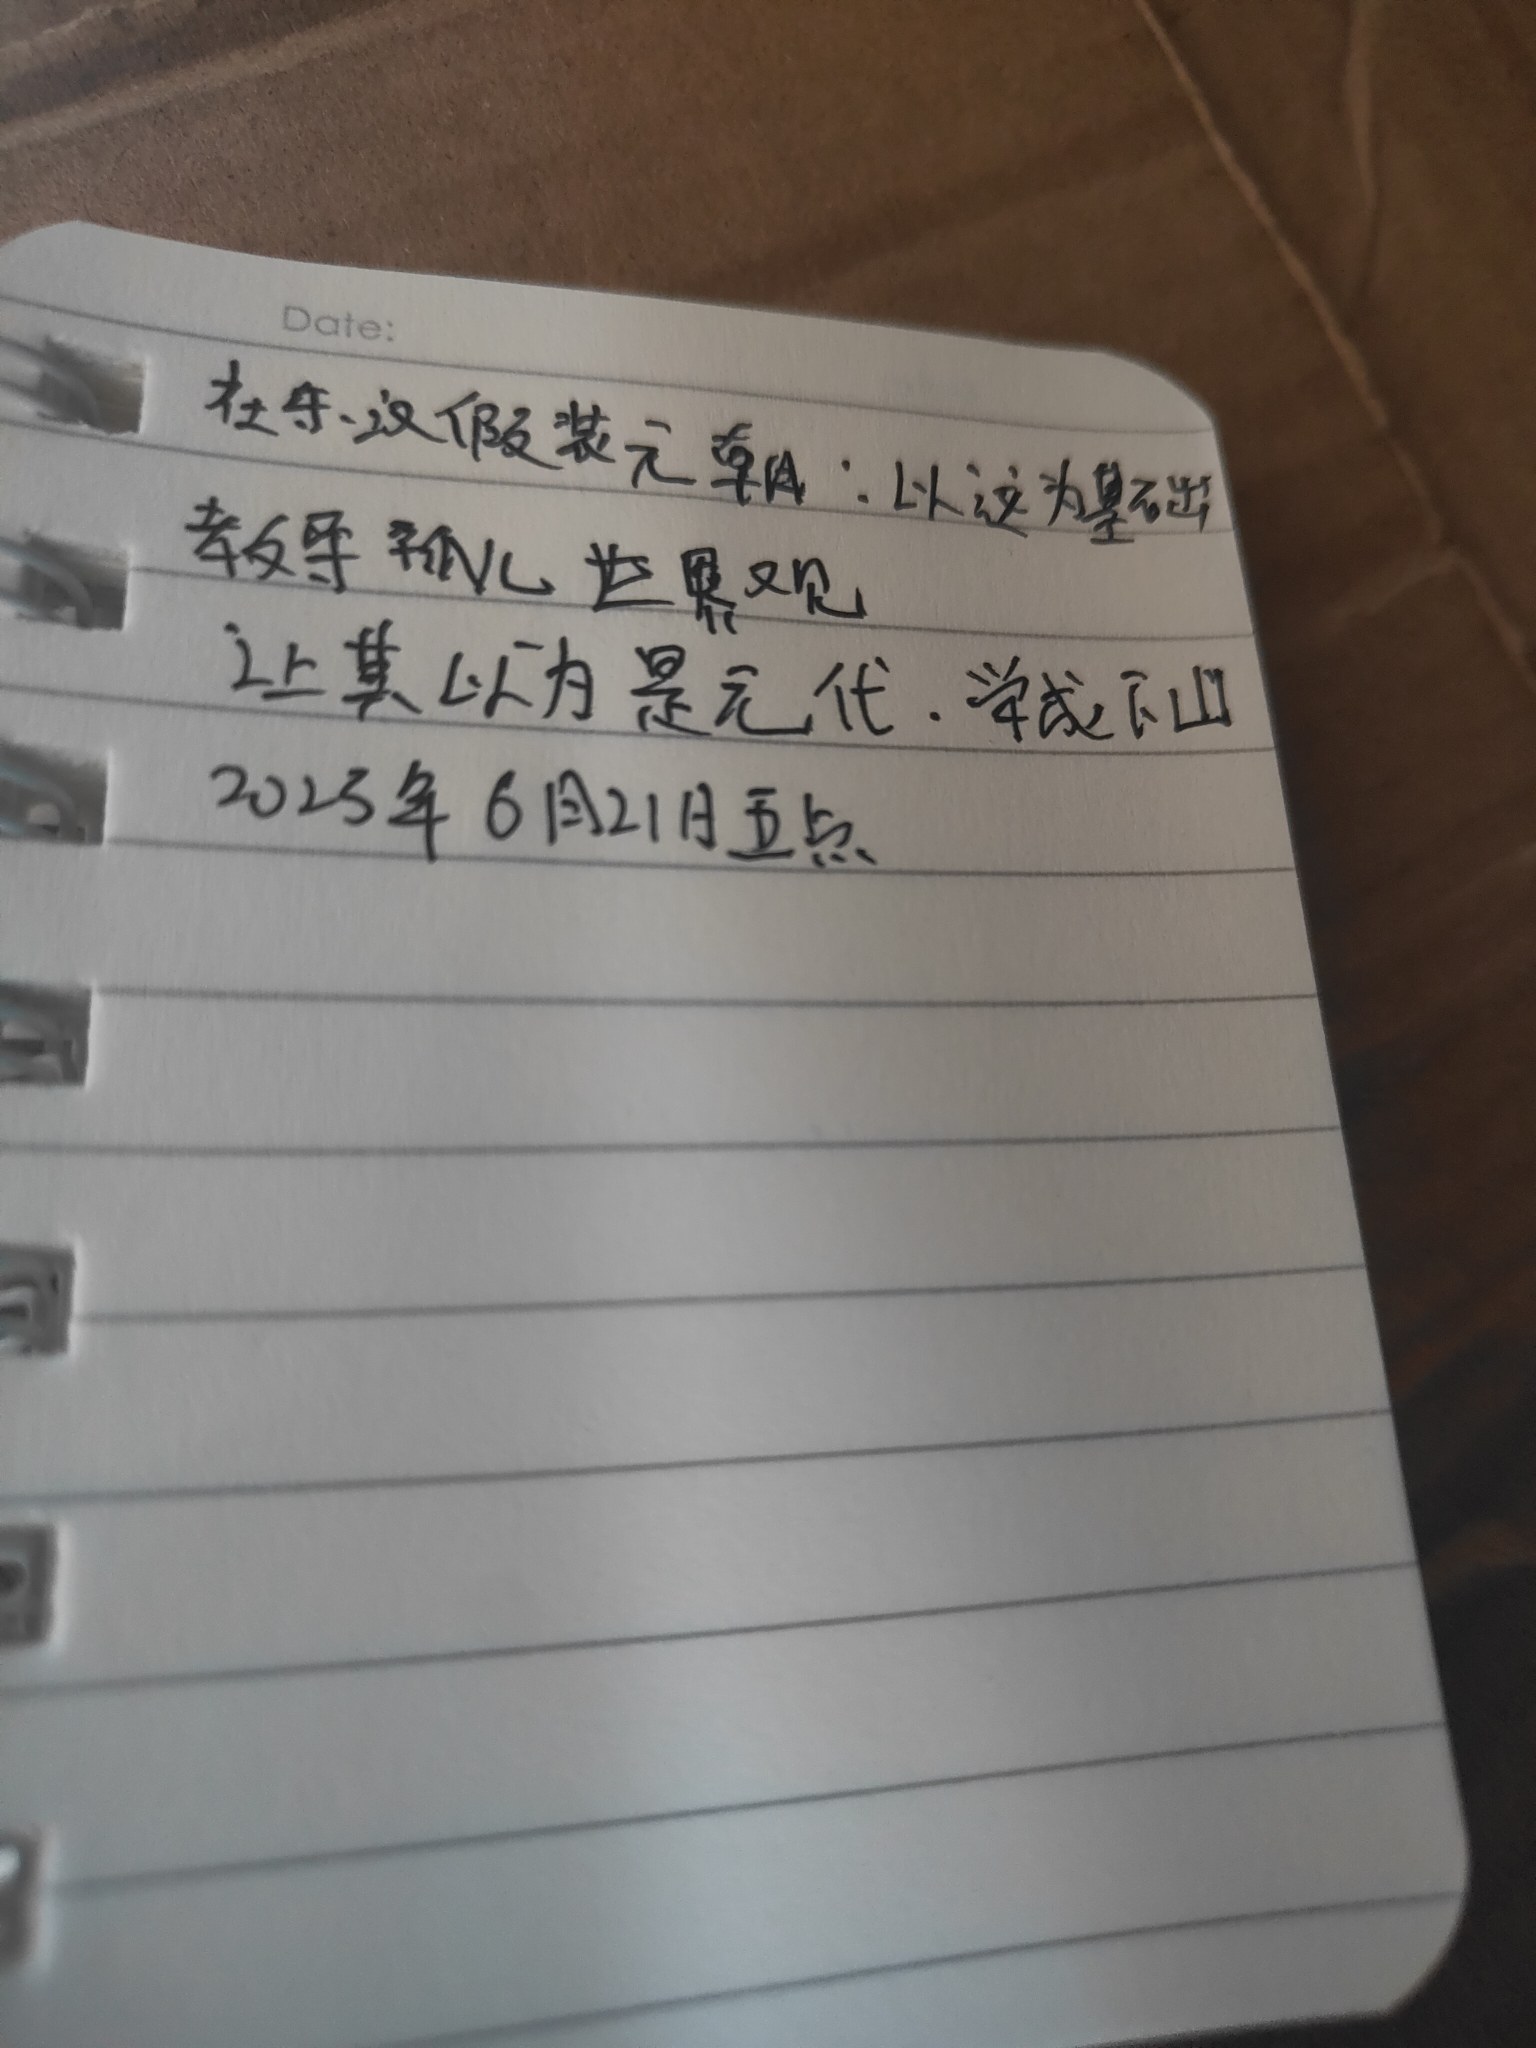 Date:
在东汉假装元朝：以这为基础
教导孤儿世界观
让其以为是元代.学成下山
2025年6月21日五点